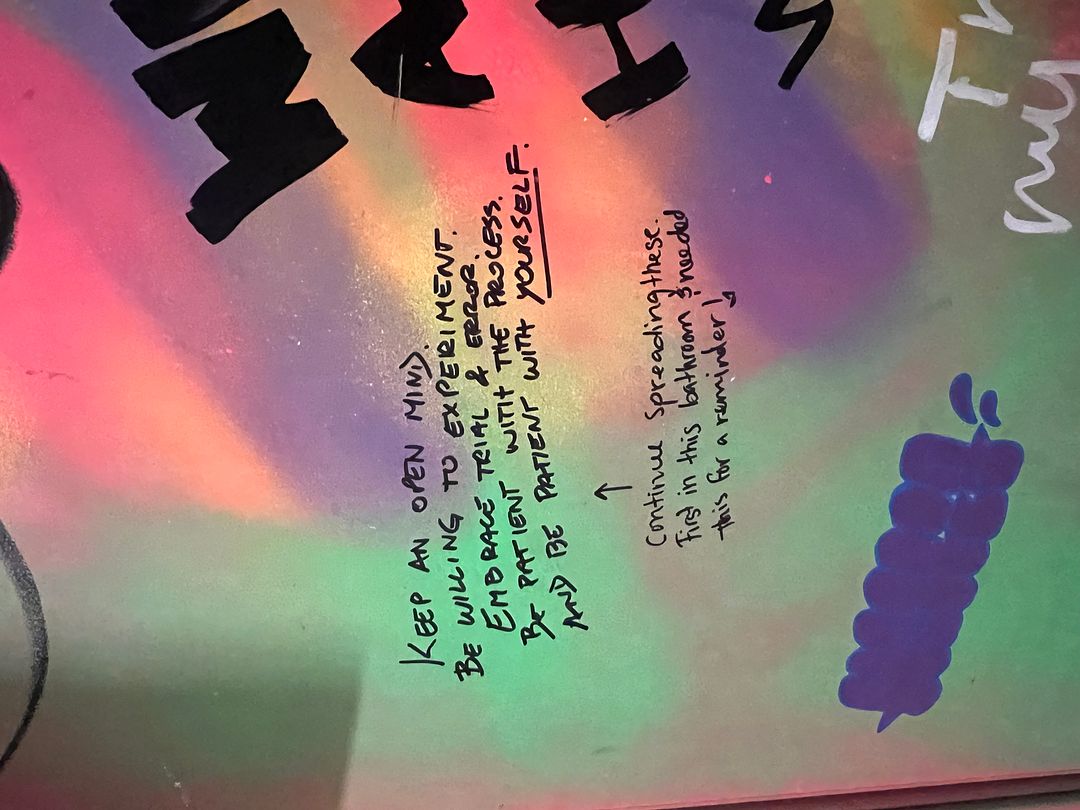 KEEP AN OPEN MIND.
BE WILLING TO EXPERIMENT.
EMBRACE TRIAL & ERROR.
BE PATIENT WITH THE PROCESS.
AND BE PATIENT WITH YOURSELF.
↑
Continue spreading these.
First in this bathroom & needed
this for a reminder!